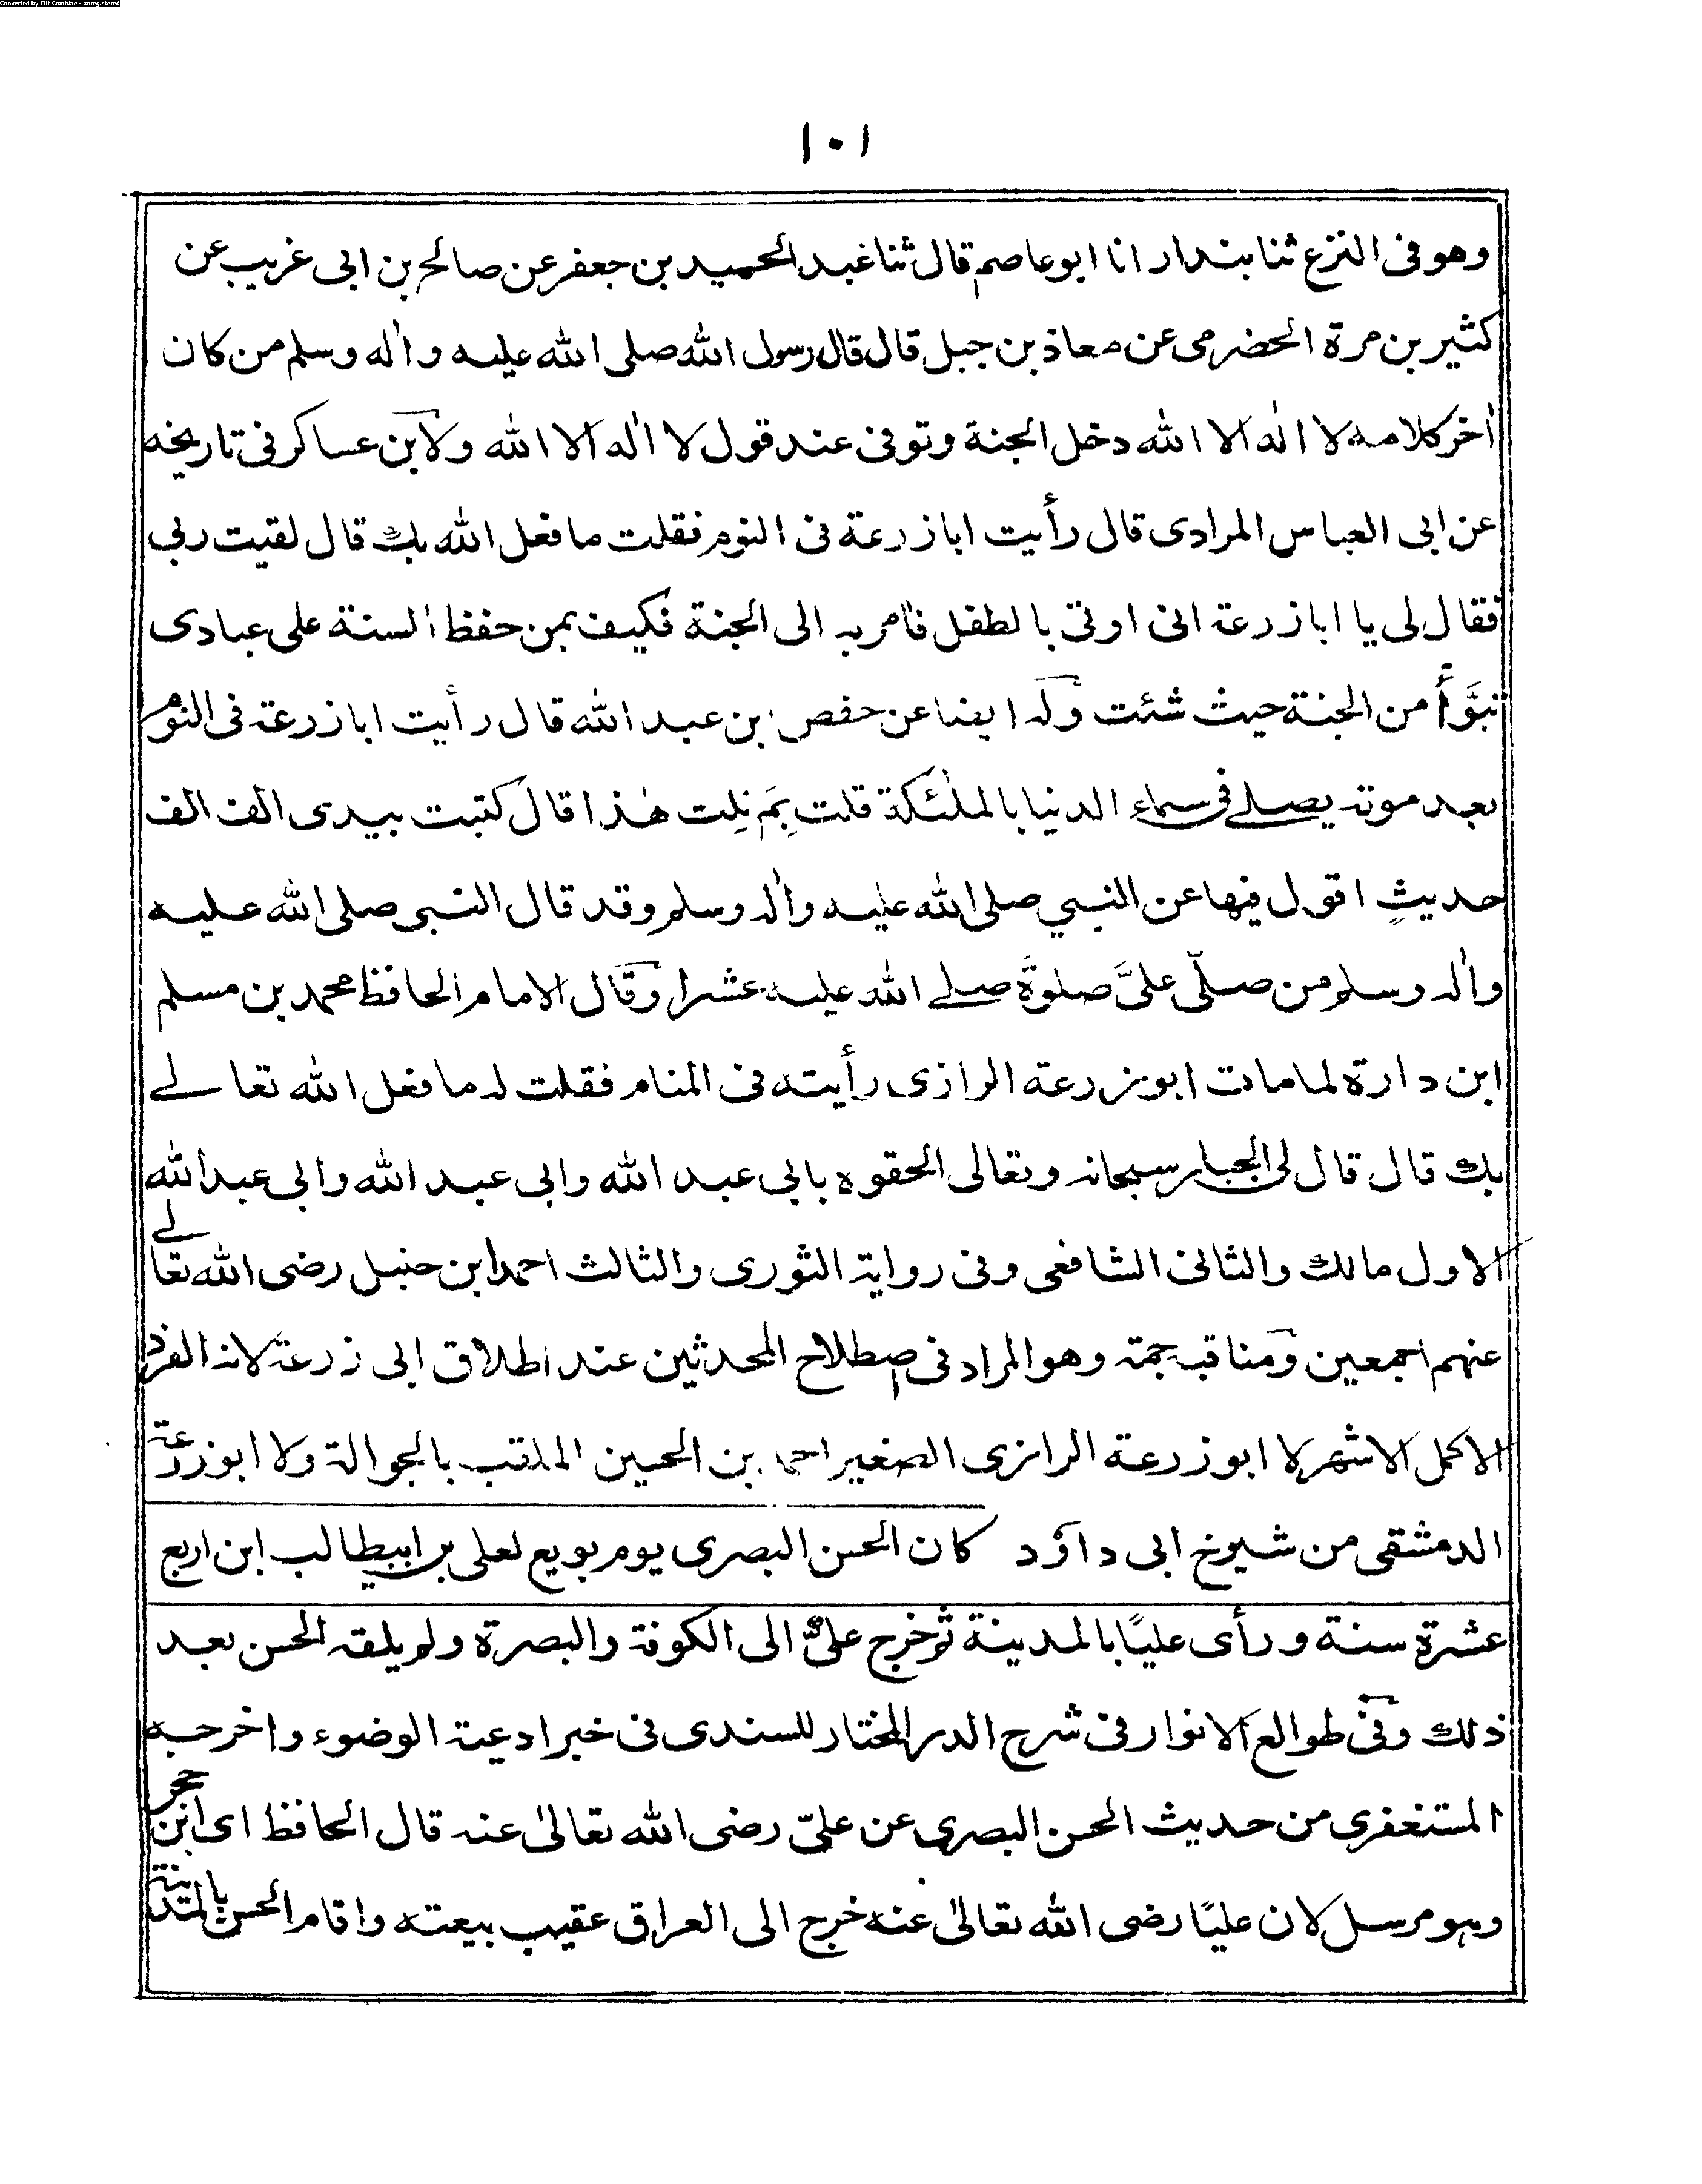 Converted by Tiff Combine - unregistered
١٠١
وهو فى النزع ثنا بندار انا ابو عاصم قال ثنا عبد الحميد بن جعفر عن صالح بن ابى غريب عن
كثير بن مرة الحضرمى عن معاذ بن جبل قال قال رسول الله صلى الله عليه واٰله وسلم من كان
اٰخر كلامه لا الٰه الا الله دخل الجنة وتوفى عند قول لا الٰه الا الله ولابن عساكر فى تاريخه
عن ابى العباس المرادى قال رأيت ابا زرعة فى النوم فقلت ما فعل الله بك قال لقيت ربى
فقال لى يا ابا زرعة انى اوتى بالطفل فاٰمر به الى الجنة فكيف بمن حفظ السنة على عبادى
تبوَّأ من الجنة حيث شئت وله ايضا عن حفص بن عبد الله قال رأيت ابا زرعة فى النوم
بعد موته يصلے فى سماء الدنيا بالملٰئكة قلت بِمَ نِلت هٰذا قال كتبت بيدى الف الف
حديثٍ اقول فيها عن النبي صلى الله عليه واٰله وسلم وقد قال النبى صلى الله عليه
واٰله وسلم من صلّى علىَّ صلوٰةً صلے الله عليه عشرا وقال الامام الحافظ محمد بن مسلم
ابن دارة لما مات ابو زرعة الرازى رأيته فى المنام فقلت له ما فعل الله تعالے
بك قال قال لى الجبار سبحانه وتعالى الحقوه بابى عبد الله وابى عبد الله وابى عبد الله
الاول مالك والثانى الشافعى وفى رواية الثورى والثالث احمد ابن حنبل رضى الله تعالے
عنهم اجمعين ومناقبه جمة وهو المراد فى اصطلاح المحدثين عند اطلاق ابى زرعة لانه الفرد
الاكمل الاشهر لا ابو زرعة الرازى الصغير احمد بن الحسين الملقب بالجوالة ولا ابو زرعة
الدمشقى من شيوخ ابى داوٗد كان الحسن البصرى يوم بويع لعلى بن ابيطالب ابن اربع
عشرة سنة ورأى عليًا بالمدينة ثم خرج علىٌّ الى الكوفة والبصرة ولم يلقه الحسن بعد
ذلك وفى طوالع الانوار فى شرح الدر المختار للسندى فى خبر ادعية الوضوء واخرجه
المستغفرى من حديث الحسن البصرى عن علىّ رضى الله تعالىٰ عنه قال الحافظ اى ابن حجر
وهو مرسل لان عليًا رضى الله تعالىٰ عنه خرج الى العراق عقيب بيعته واقام الحسن بالمدينة